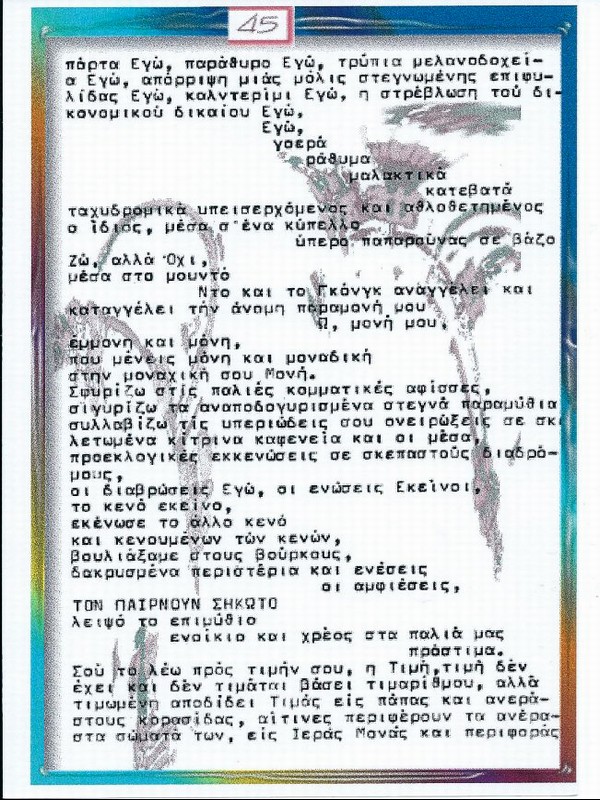 45
πόρτα Εγώ, παράθυρο Εγώ, τρύπια μελανοδοχεί-
α Εγώ, απόρριψη μιάς μόλις στεγνωμένης επιφυ-
λίδας Εγώ, καλντερίμι Εγώ, η στρέβλωση τού δι-
κονομικού δικαίου Εγώ,
Εγώ,
γοερά
ράθυμα
μαλακτικά
κατεβατά
ταχυδρομικά υπεισερχόμενος και αθλοθετημένος
ο ίδιος, μέσα σ'ένα κύπελλο
ύπερο παπαρούνας σε βάζο
Ζώ, αλλά Όχι,
μέσα στο μουντό
Ντο και το Γκόνγκ αναγγέλει και
καταγγέλει τήν άνομη παραμονή μου
Ω, μονή μου,
έμμονη και μόνη,
που μένεις μόνη και μοναδική
στην μοναχική σου Μονή.
Σφυρίζω στίς παλιές κομματικές αφίσσες,
σιγυρίζω τα αναποδογυρισμένα στεγνά παραμύθια
συλλαβίζω τίς υπεριώδεις σου ονειρώξεις σε σκ
λετωμένα κίτρινα καφενεία και οι μέσα,
προεκλογικές εκκενώσεις σε σκεπαστούς διαδρό-
μους,
οι διαβρώσεις Εγώ, οι ενώσεις Εκείνοι,
το κενό εκείνο,
εκένωσε το άλλο κενό
και κενουμένων τών κενών,
βουλιάξαμε στους βούρκους,
δακρυσμένα περιστέρια και ενέσεις
οι αμφιέσεις,
ΤΟΝ ΠΑΙΡΝΟΥΝ ΣΗΚΩΤΟ
λειψό το επιμύθιο
ενοίκιο και χρέος στα παλιά μας
πρόστιμα.
Σού το λέω πρός τιμήν σου, η Τιμή,τιμή δέν
έχει και δέν τιμάται βάσει τιμαρίθμου, αλλά
τιμωμένη αποδίδει Τιμάς είς πάπας και ανερά-
στους κορασίδας, αίτινες περιφέρουν τα ανέρα-
στα σώματά των, είς Ιεράς Μονάς και περιφοράς